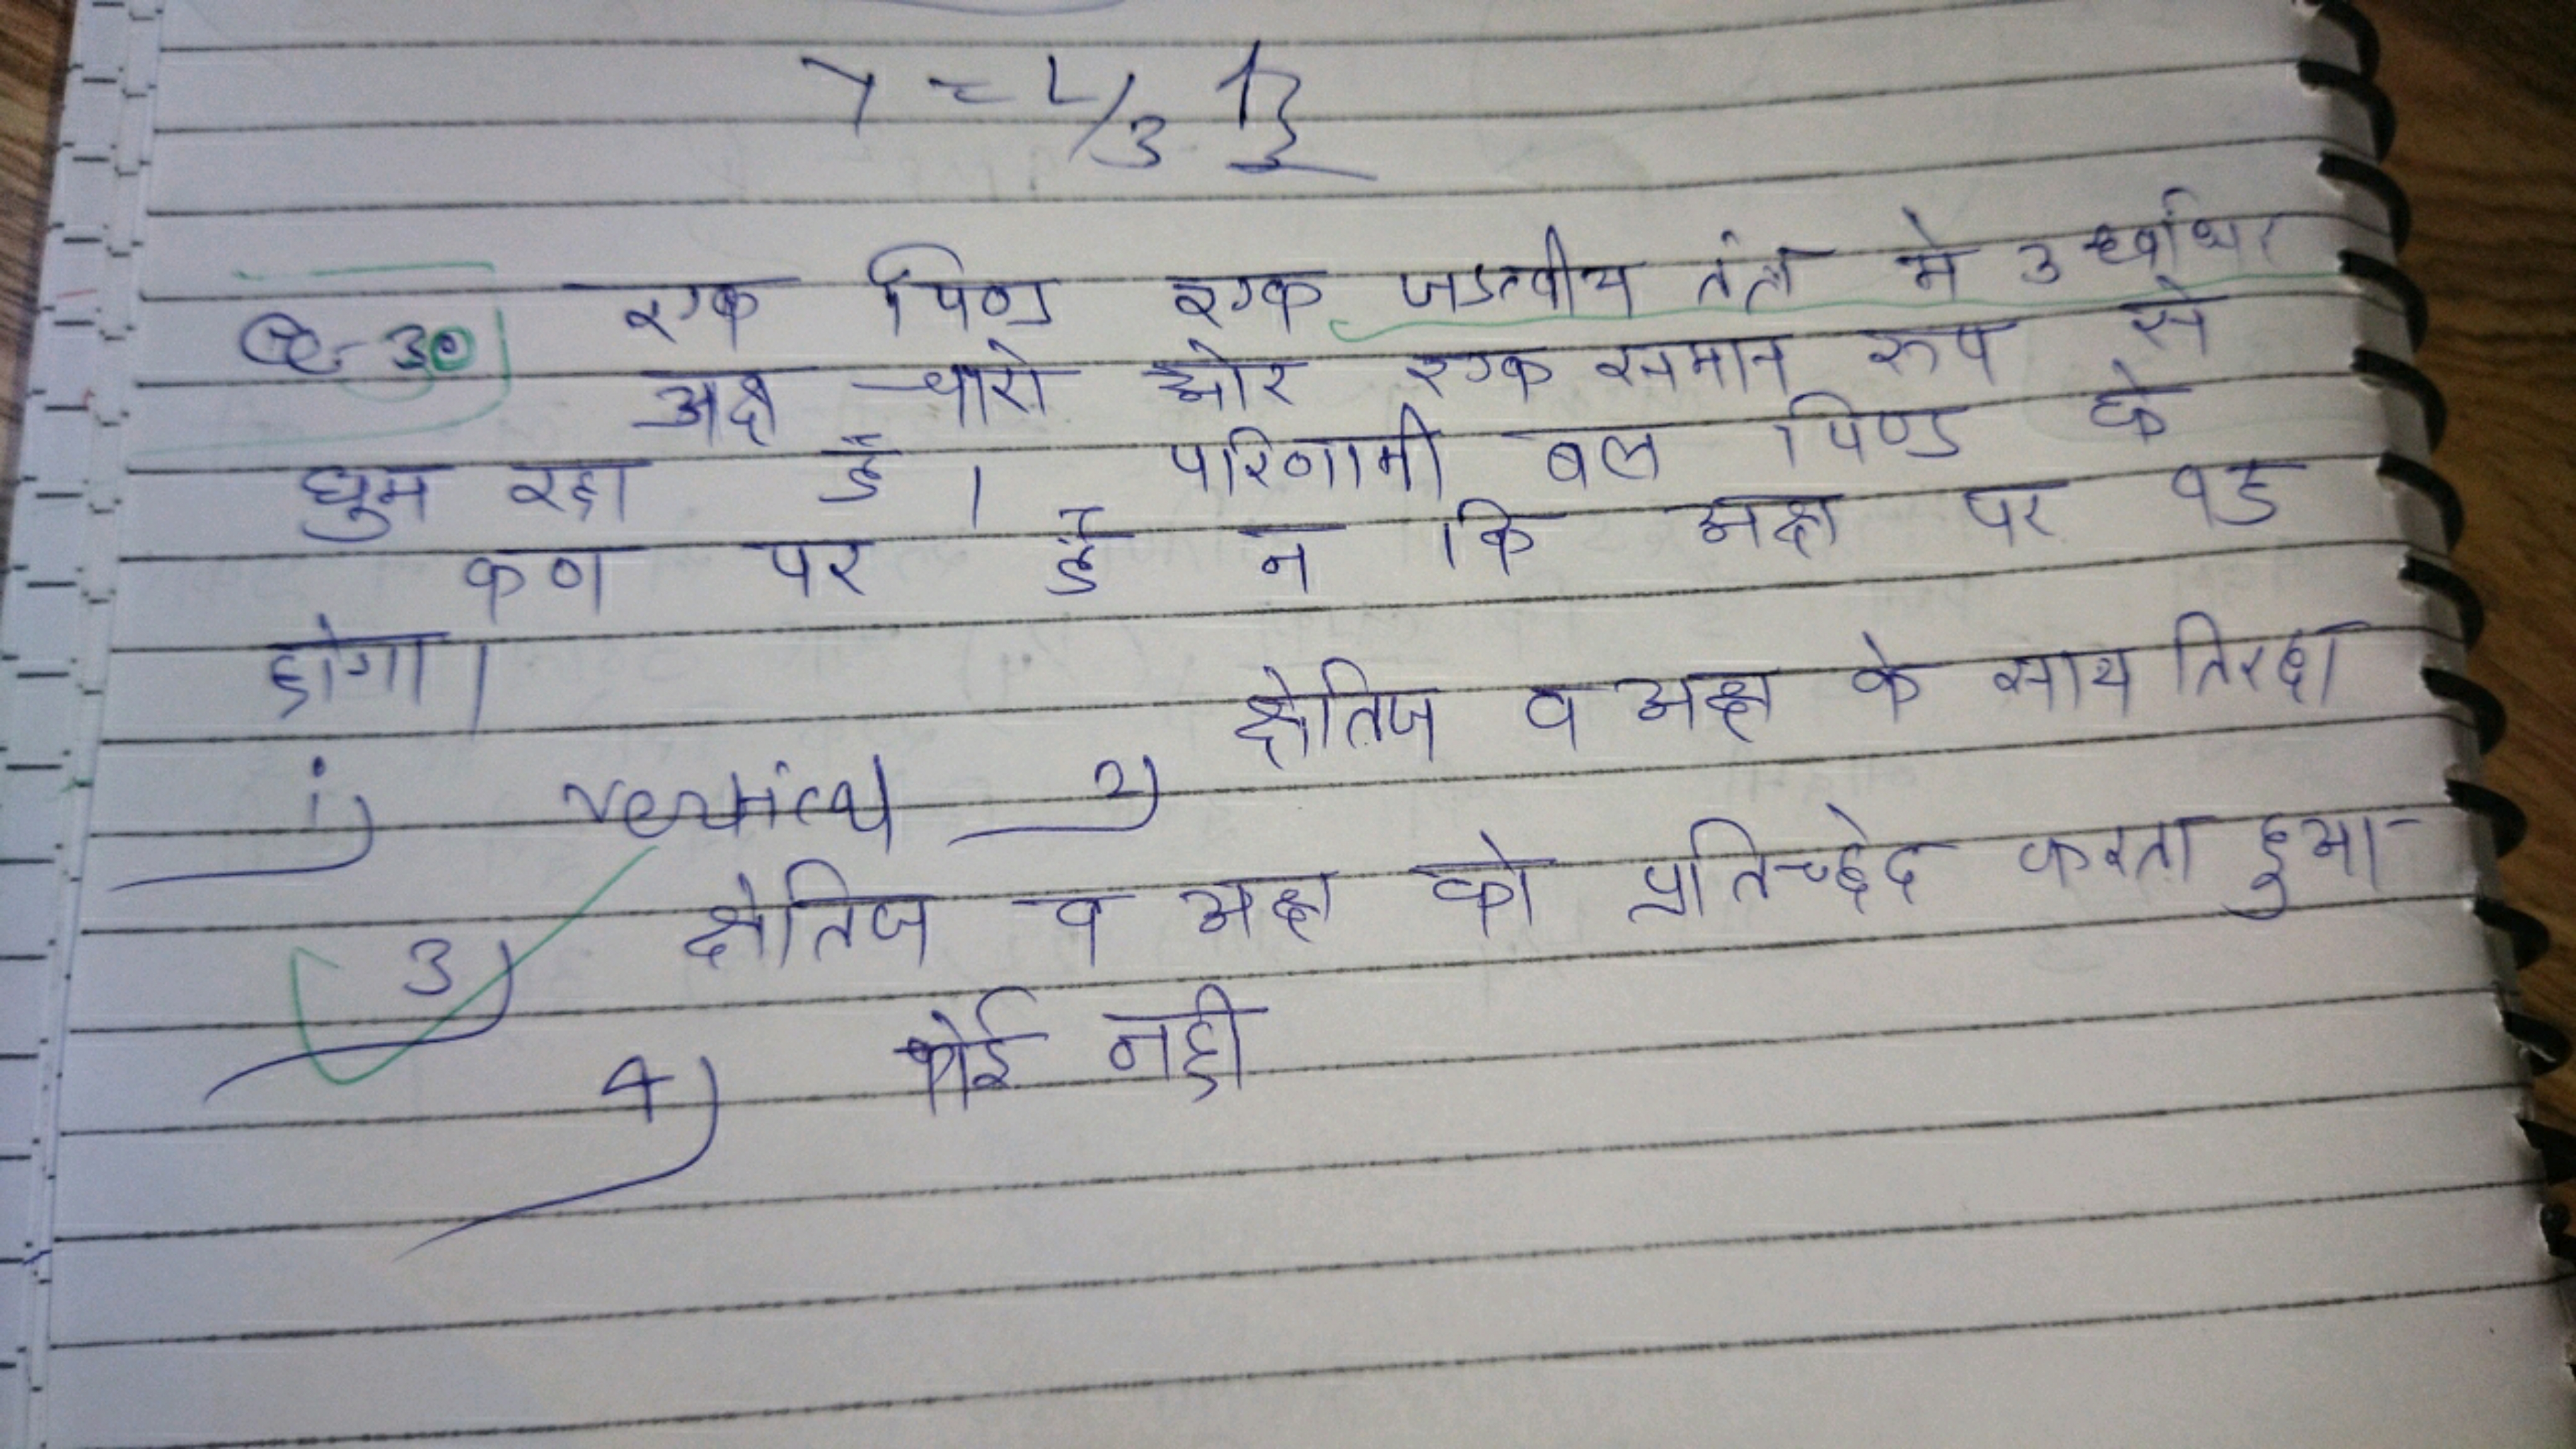 γ = L/3
Q-30 एक पिण्ड एक जडत्वीय तंत्र मे उर्ध्वाधर
अक्ष चारो ओर एक समान रूप से
घुम रहा है। परिणामी बल पिण्ड के
कण पर है न कि अक्ष पर वह
होगा।
1) vertical 2) क्षैतिज व अक्ष के साथ तिरछा
3) क्षैतिज व अक्ष को प्रतिच्छेद करता हुआ
4) कोई नही